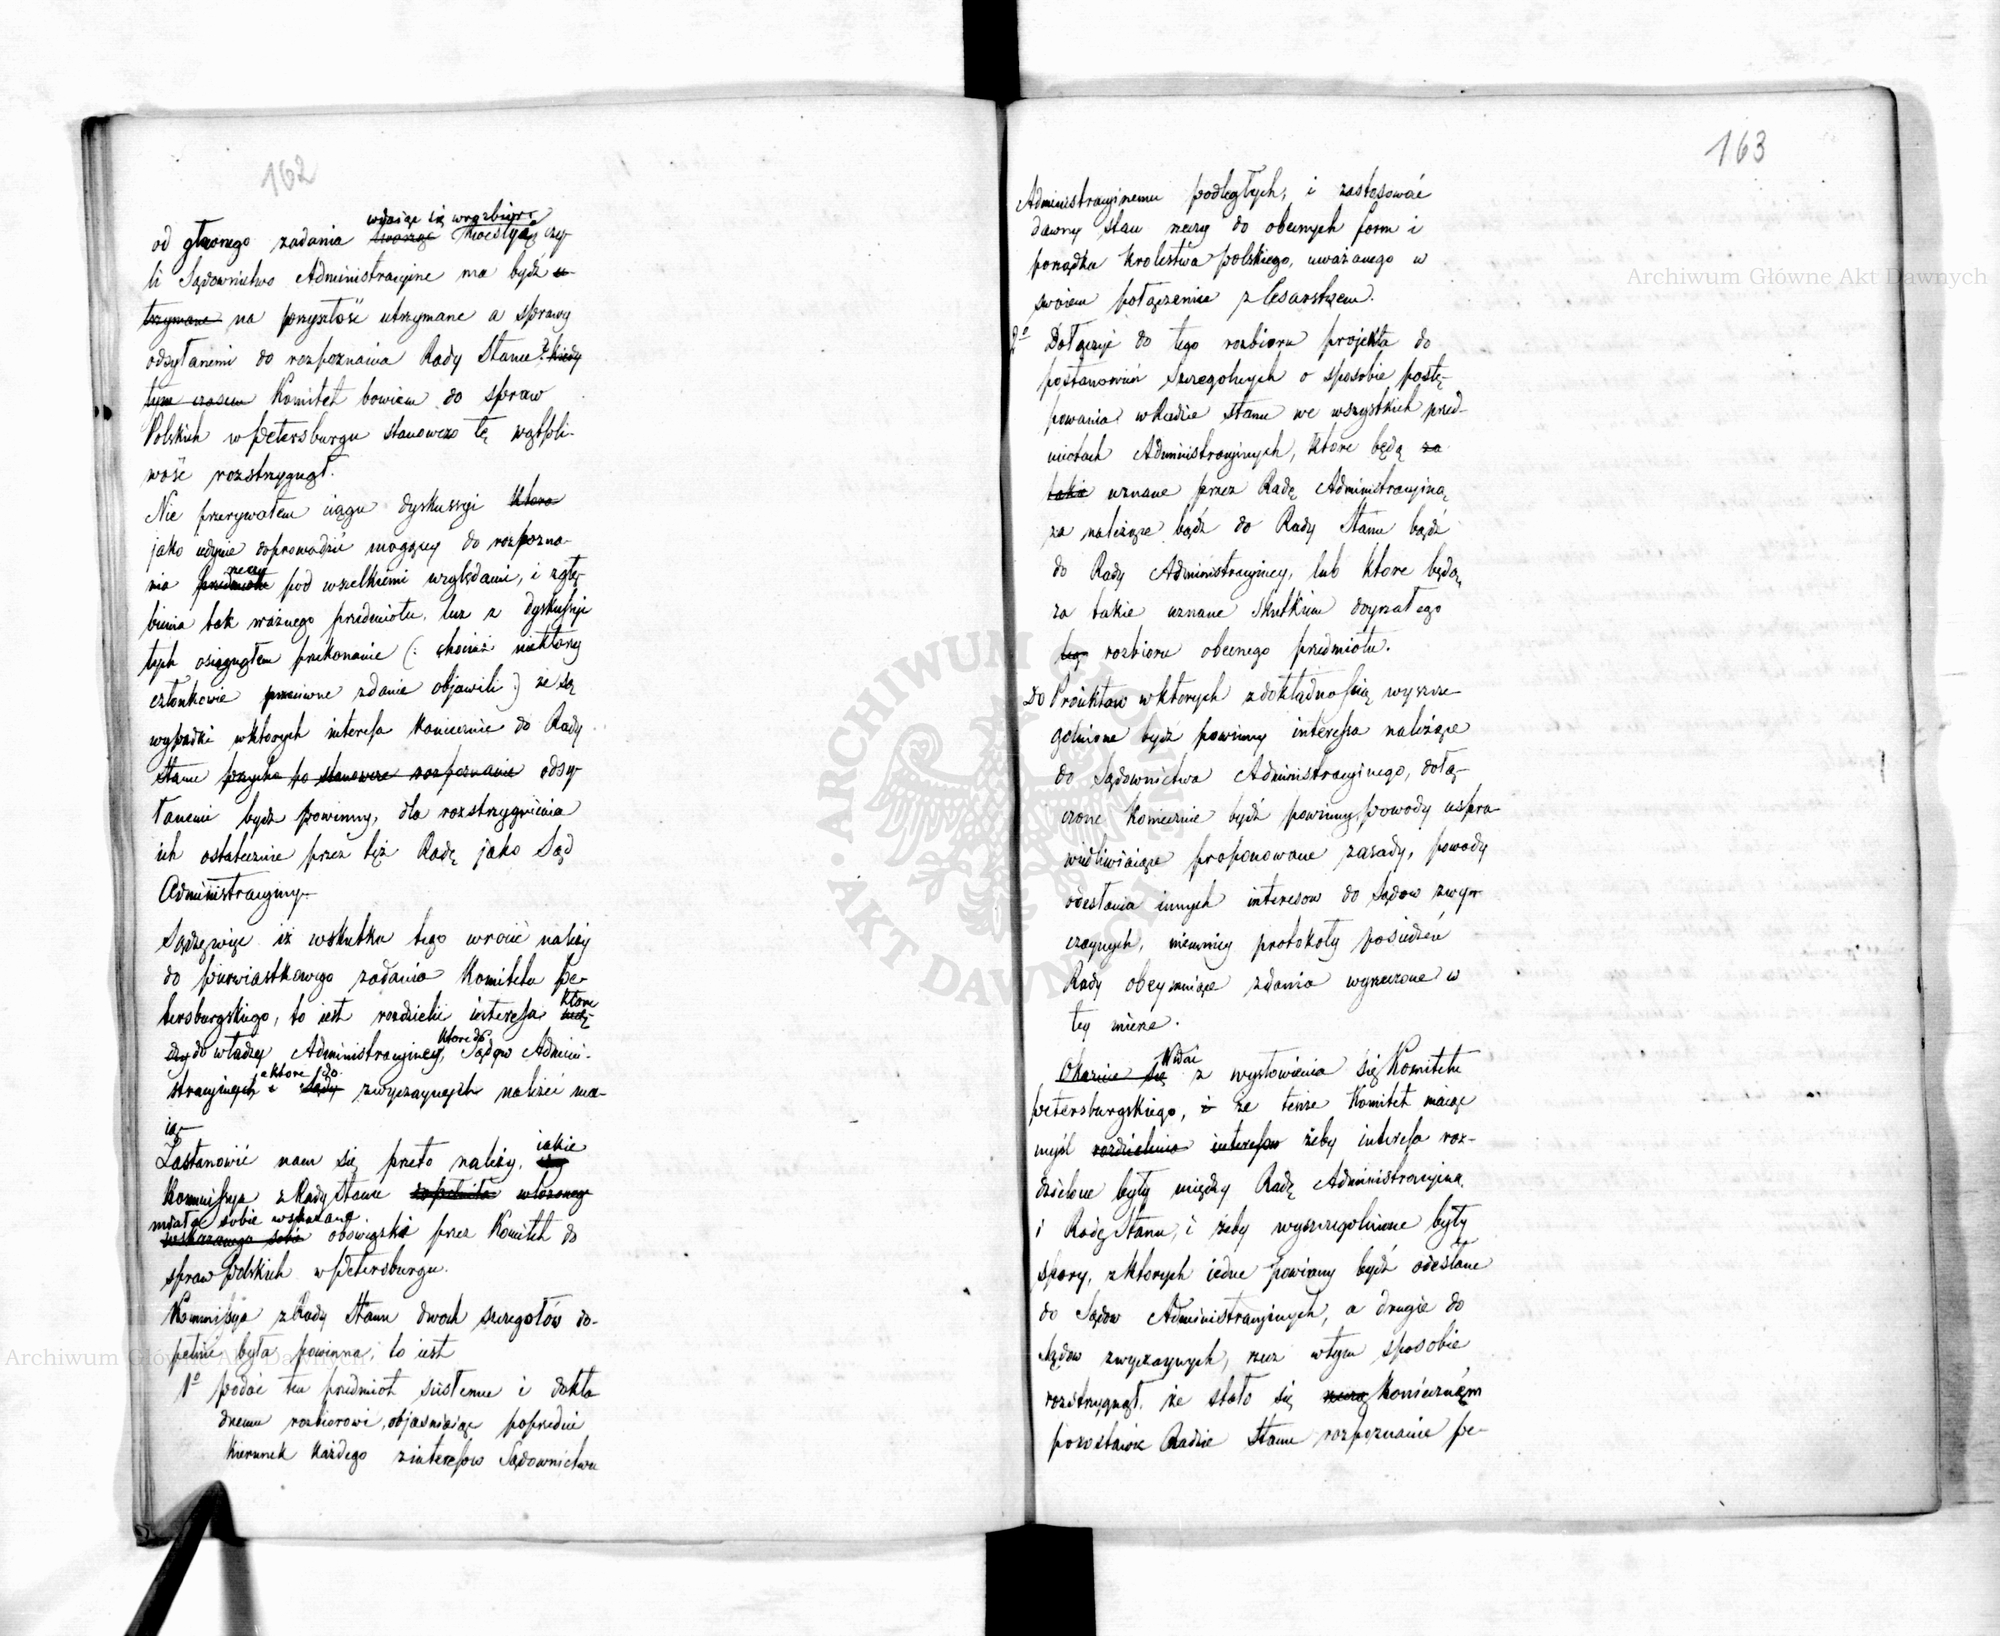 162
wdaiąc się w rozbiór
od głównego zadania tworząc kwestyą czy-
li Sądownictwo Administracyine ma bydź u-
trzymane na przyszłość utrzymane a sprawy
odsyłanemi do rozpoznania Rady Stanu? kiedy
tym czasem Komitet bowiem do spraw
Polskich w Petersburgu stanowczo tę wątpli-
wość rozstrzygnął.
Nie przerywałem ciągu dyskussyi która
jako iedynie doprowadzić mogącey do rozpozna-
rzeczy
nia przedmiotu pod wszelkiemi względami, i zgłę-
bienia tak ważnego przedmiotu, lecz z dyskussyi
tych osiągnąłem przekonanie (: chociaż niektórzy
członkowie przeciwne zdanie objawili :) że są
wypadki w których interessa koniecznie do Rady
Stanu przycho po stanowcze rozpoznanie odsy-
łanemi bydź powinny, dla rozstrzygnienia
ich ostatecznie przez tęż Radę jako Sąd
Administracyiny.
Sądzę więc iż w skutku tego wrócić należy
do pierwiastkowego zadania Komitetu Pe-
które
tersburgskiego, to iest rozdzielić interessa
które do
do władzy Administracyiney, Sądów Admini-
a które do
stracyinych i Sądy zwyczaynych należeć ma-
ią.
iakie
Zastanowić nam się przeto należy,
Kommissya z Rady Stanu dopełniła włożonego
miała sobie wskazane
wskazanego sobie obowiązki przez Komitet do
spraw Polskich w Petersburgu.
Kommissya z Rady Stanu dwóch szczegółów do-
pełnić była powinna, to iest
1º podać ten przedmiot sistemu i dokła
dnemu rozbiorowi, objaśniaiąc poprzednie
kierunek każdego z interessow Sądownictwu
163
Administracyinemu podległych, i zastosować
dawny stan rzeczy do obecnych form i
porządku Krolestwa Polskiego, uważanego w
swoiem połączeniu z Cesarstwem.
2º Dołączyć do tego rozbioru projekta do
postanowień szczególnych o sposobie postę-
powania w Radzie Stanu we wszystkich przed-
miotach Administracyinych, które będą za
takie uznane przez Radę Administracyiną
za należące bądź do Rady Stanu bądź
do Rady Administracyiney, lub które będą
za takie uznane skutkiem doyrzałego
tego rozbioru obecnego przedmiotu.
Do Proiektow w których z dokładnością wyszcze-
gólnione bydź powinny interessa należące
do Sądownictwa Administracyinego, dołą-
czone koniecznie bydź powinny powody uspra-
wiedliwiaiące proponowane zasady, powody
odesłania innych interesow do Sądow zwy-
czaynych, niemniey protokoły posiedzeń
Rady obeymuiące zdania wyrzeczone w
tey mierze.
Widać
Okazuie się z wysłowienia się Komitetu
Petersburgskiego, iż że tenże Komitet maiąc
myśl rozdzielenia interessow żeby interessa roz-
dzielone były między Radę Administracyiną
i Radę Stanu, i żeby wyszczególnione były
spory, z których iedne powinny bydź odesłane
do Sądow Administracyinych, a drugie do
Sądow zwyczaynych, rzecz w tym sposobie
rozstrzygnął, że stało się rzeczą koniecznem
pozostawić Radzie Stanu rozpoznanie pe-
ARCHIWUM GŁÓWNE AKT DAWNYCH
Archiwum Główne Akt Dawnych
Archiwum Główne Akt Dawnych